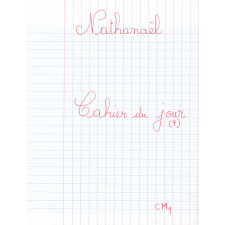 Nathanaël
Cahier du jour
(1)
CM1